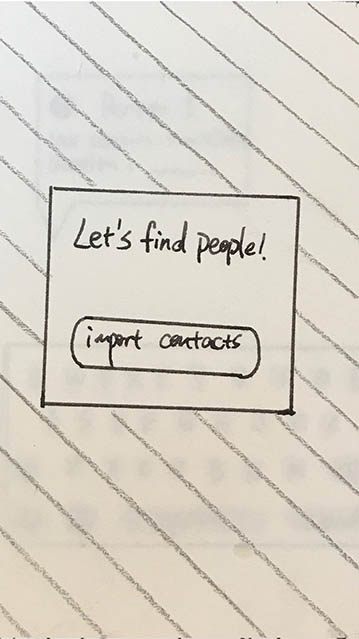 Let's find people!
import contacts